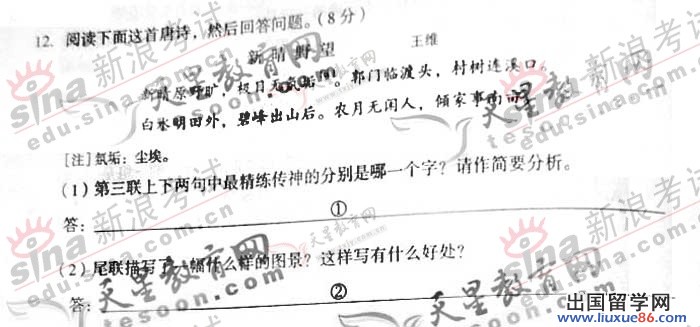 12. 阅读下面这首唐诗，然后回答问题。（8 分）
新晴野望 王维
新晴原野旷，极目无氛垢[注]。郭门临渡头，村树连溪口。
白水明田外，碧峰出山后。农月无闲人，倾家事南亩。
[注]氛垢：尘埃。
（1）第三联上下两句中最精练传神的分别是哪一个字？请作简要分析。
答： ①
（2）尾联描写了一幅什么样的图景？这样写有什么好处？
答： ②
sina 新浪考试
edu.sina.com.cn
天星教育网
tesoon.com
出国留学网
www.liuxue86.com